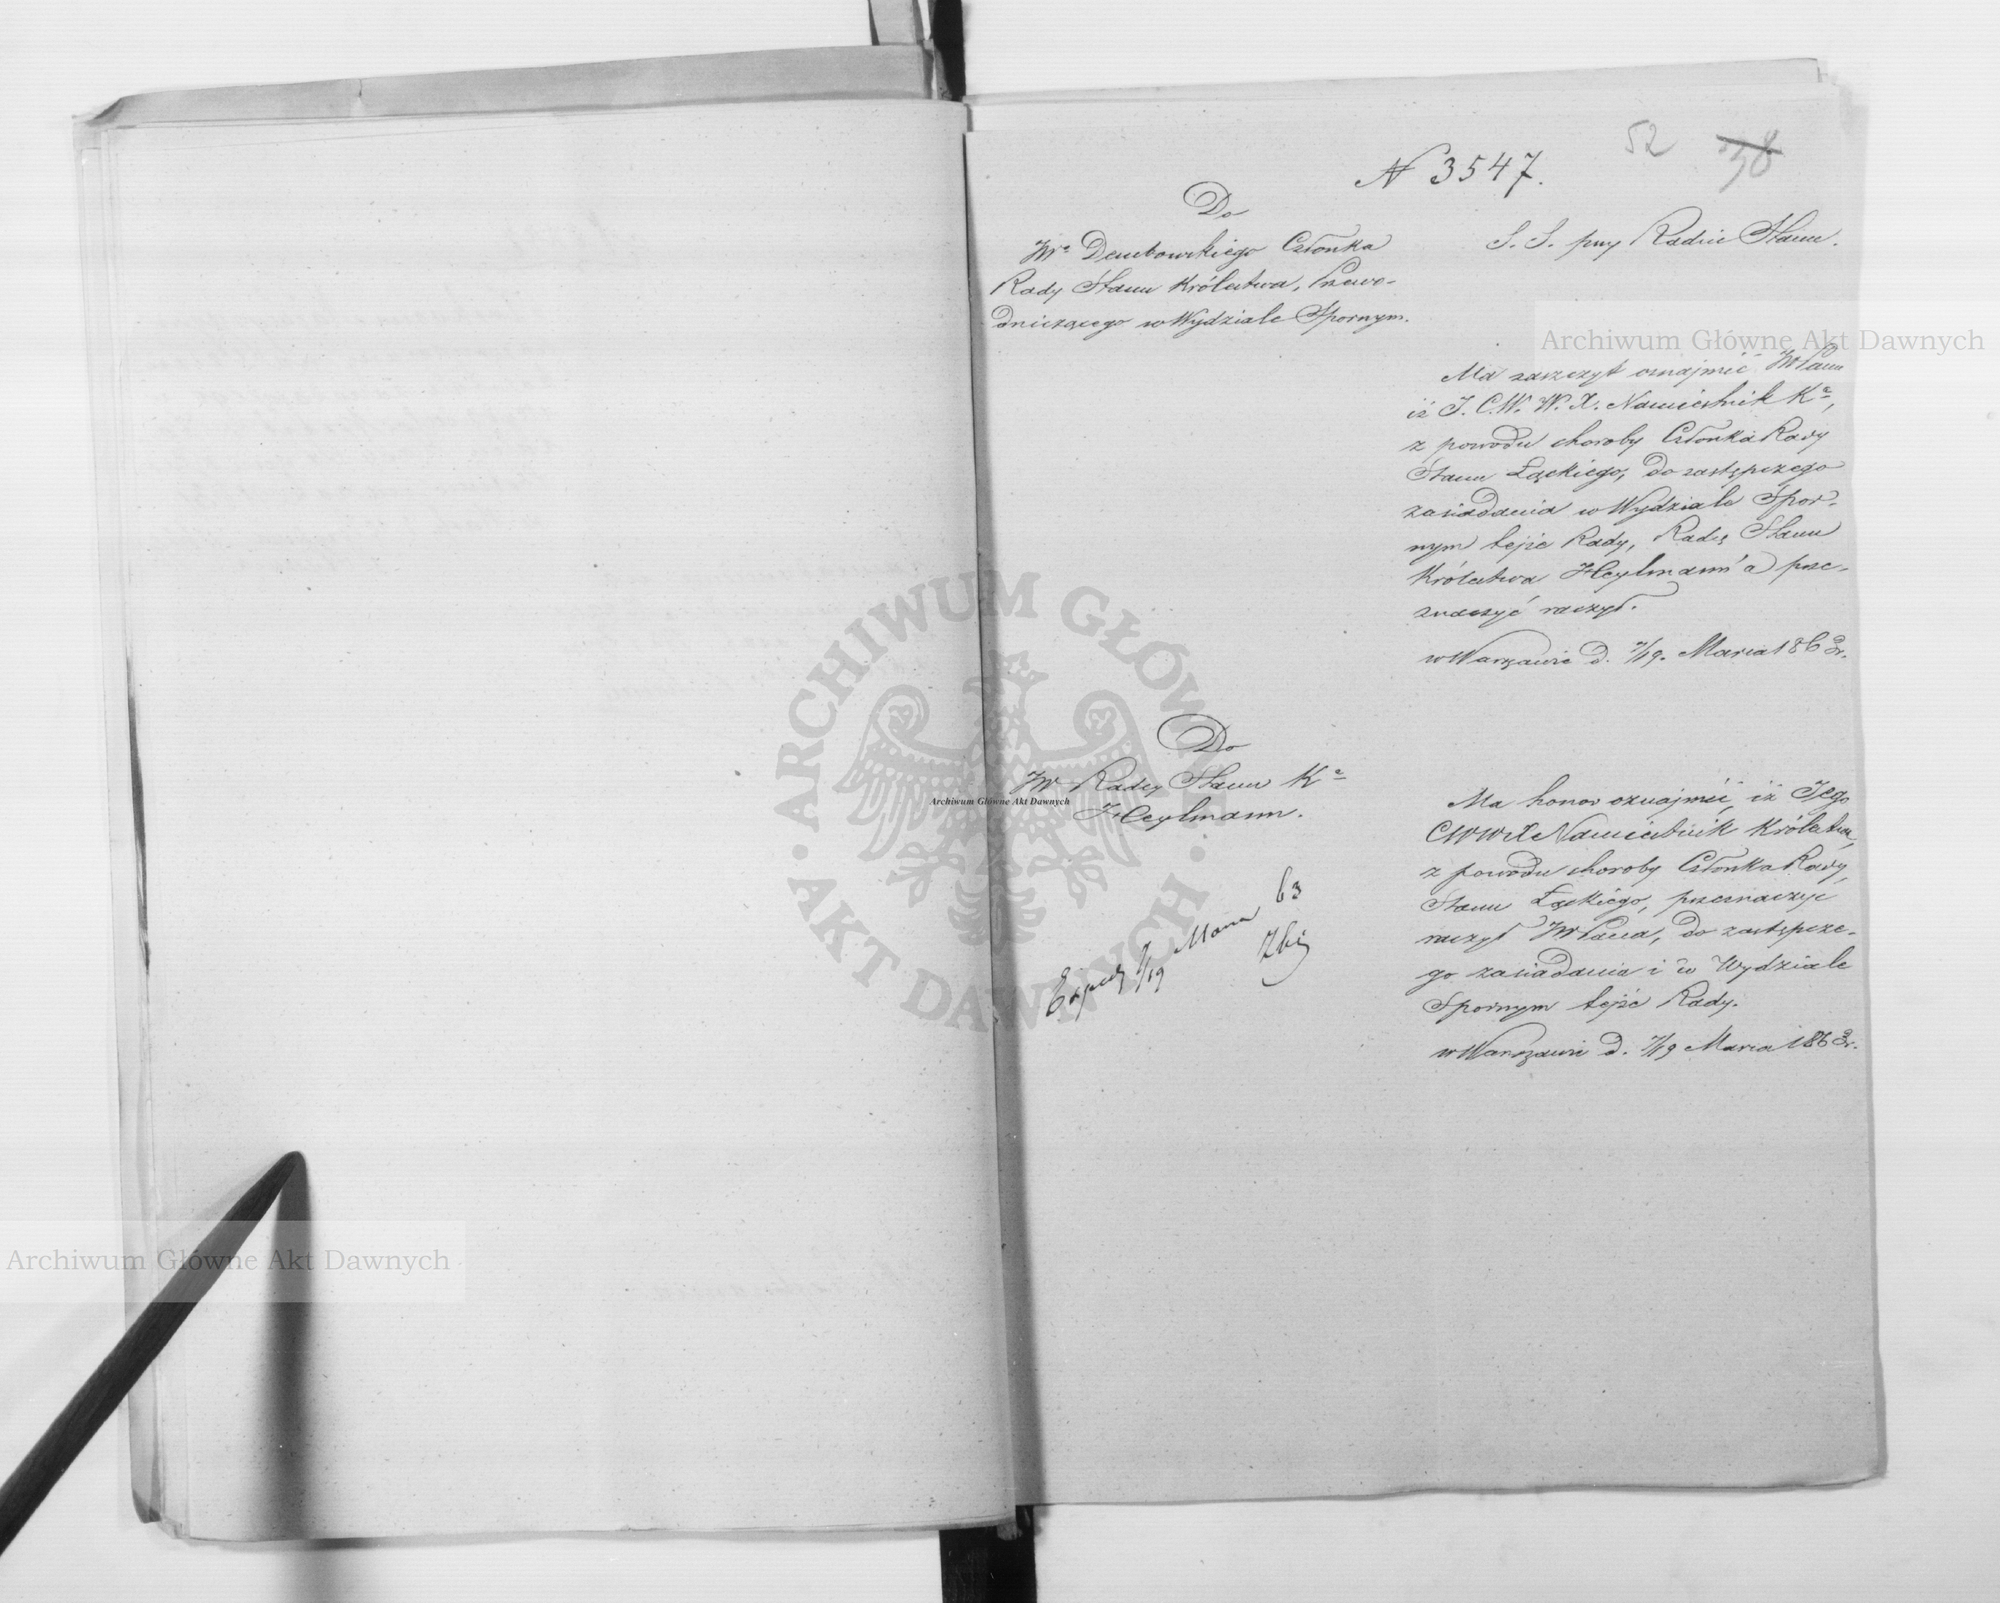 52 38
N 3547.
Do
JWo Dembowskiego Członka
Rady Stanu Królestwa, Przewo-
dniczącego w Wydziale Spornym.
S. S. przy Radzie Stanu.
Ma zaszczyt oznajmić JWPanu
iż J. C. W. W. X. Namiestnik Ka,
z powodu choroby Członka Rady
Stanu Łąckiego, do zastępczego
zasiadania w Wydziale Spor-
nym tejże Rady, Radcę Stanu
Królestwa Heylmann'a prze-
znaczyć raczył.
w Warszawie d. 7/19. Marca 1863 r.
Do
JW Radcy Stanu Ka
Heylmann.
Ma honor oznajmić, iż Jego
CWWX Namiestnik Królestwa,
z powodu choroby Członka Rady
Stanu Łąckiego, przeznaczyć
raczył JWPana, do zastępcze-
go zasiadania i w Wydziale
Spornym tejże Rady.
w Warszawie d. 7/19 Marca 1863 r.
7/19 Marca 63
Archiwum Główne Akt Dawnych
Archiwum Główne Akt Dawnych
Archiwum Główne Akt Dawnych
ARCHIWUM GŁÓWNE · AKT DAWNYCH ·